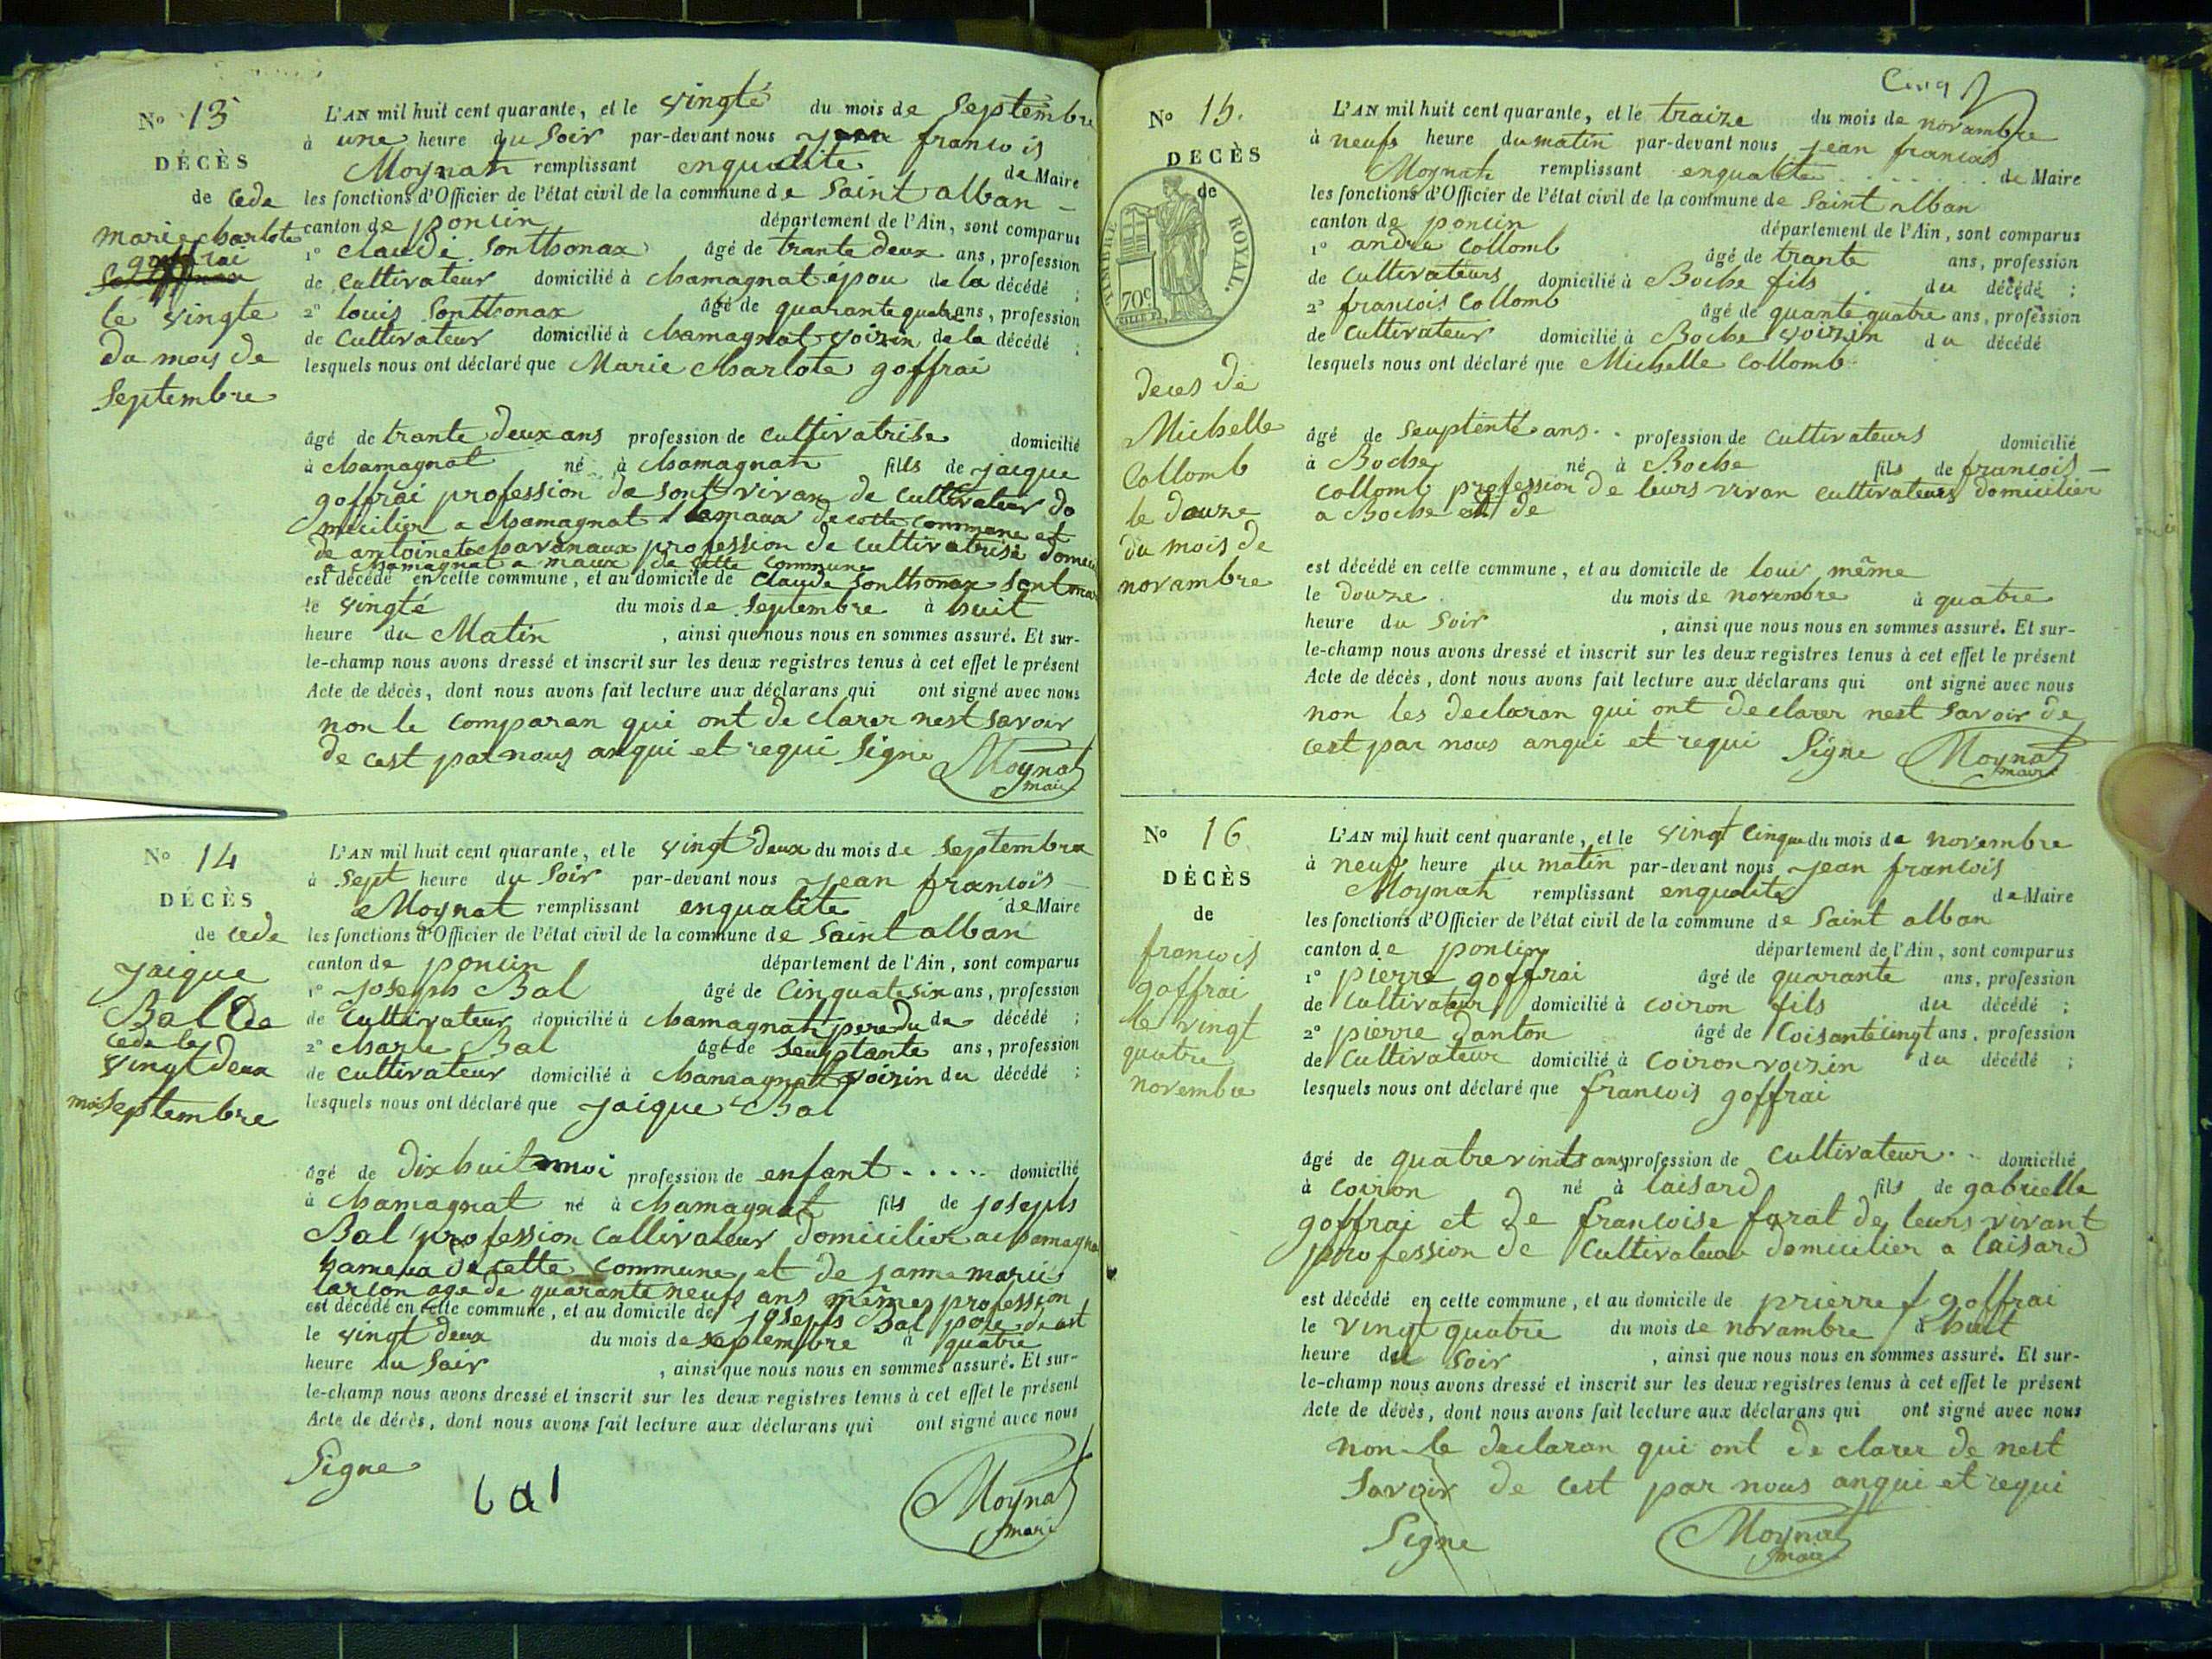 No 13
DÉCÈS
de cede
marie charlote
goffrai
le vingte
du mois de
Septembre
L'AN mil huit cent quarante, et le vingte du mois de Septembre
à une heure du Soir par-devant nous jean francois
Moynat remplissant enqualite de Maire
les fonctions d'Officier de l'état civil de la commune de Saint alban
canton de poncin département de l'Ain, sont comparus
1° claude Sonthonax âgé de trante deux ans, profession
de Cultivateur domicilié à chamagnat épou de la décédé ;
2° louis Sonthonax âgé de quarante quatre ans, profession
de Cultivateur domicilié à chamagnat voizin de la décédé ;
lesquels nous ont déclaré que Marie charlote goffrai
âgé de trante deux ans profession de cultivatrise domicilié
à chamagnat né à chamagnat fills de jacque
goffrai profession de sont vivan de cultivateur do
micilier a chamagnat hamaux de cette commune et
de antoinete chavanaux profession de cultivatrise domici
a chamagnat a maux de cette commune
est décédé en cette commune, et au domicile de Claude Sonthonax Sont mar
le vingté du mois de Septembre à huit
heure du Matin , ainsi que nous nous en sommes assuré. Et sur-
le-champ nous avons dressé et inscrit sur les deux registres tenus à cet effet le présent
Acte de décès, dont nous avons fait lecture aux déclarans qui ont signé avec nous
non le comparan qui ont de clarer nest savoir
de cest par nous anqui et requi Signe Moynat
maire
No 14
DÉCÈS
de cede
jaique
Bal De
cede le
vingt deux
mois Septembre
L'AN mil huit cent quarante, et le vingt deux du mois de Septembre
à Sept heure du Soir par-devant nous jean francois
Moynat remplissant enqualite de Maire
les fonctions d'Officier de l'état civil de la commune de Saint alban
canton de poncin département de l'Ain, sont comparus
1° joseph Bal âgé de Cinquate six ans, profession
de Cultivateur domicilié à chamagnat pere du de décédé ;
2° charle Bal âgé de Seuptante ans, profession
de cultivateur domicilié à chamagnat voizin du décédé ;
lesquels nous ont déclaré que jaique Bal
âgé de dix huit moi profession de enfant . . . . . domicilié
à chamagnat né à chamagnat fils de joseph
Bal profession Cultivateur domicilier a chamagna
hameau de cette commune et de janne marie
larcon age de quarante neufs ans mêmes profession
est décédé en cette commune, et au domicile de joseph Bal pere de cet
le vingt deux du mois de septembre à quatre
heure du Soir , ainsi que nous nous en sommes assuré. Et sur-
le-champ nous avons dressé et inscrit sur les deux registres tenus à cet effet le présent
Acte de décès, dont nous avons fait lecture aux déclarans qui ont signé avec nous
Signe bal Moynat
mair
Cinq
No 15.
DECÈS
de
TIMBRE ROYAL.
70c
deces de
Michelle
Collomb
le douze
du mois de
novambre
L'AN mil huit cent quarante, et le traize du mois de novambre
à neufs heure du matin par-devant nous jean francois
Moynat remplissant enqualite . . . . . . . de Maire
les fonctions d'Officier de l'état civil de la commune de Saint alban
canton de poncin département de l'Ain, sont comparus
1° andre Collomb âgé de trante ans, profession
de Cultivateurs domicilié à Boche fils du décédé ;
2° francois Collomb âgé de quante quatre ans, profession
de Cultivateur domicilié à Boche voizin du décédé
lesquels nous ont déclaré que Michelle Collomb
âgé de Seuptente ans . . profession de Cultivateurs domicilié
à Boche né à Boche fils de francois
Collomb profession de leurs vivan cultivateurs domicilier
a Boche et de
est décédé en cette commune, et au domicile de loui même
le Douze du mois de novembre à quatre
heure du Soir , ainsi que nous nous en sommes assuré. Et sur-
le-champ nous avons dressé et inscrit sur les deux registres tenus à cet effet le présent
Acte de décès, dont nous avons fait lecture aux déclarans qui ont signé avec nous
non les declaran qui ont declarer nest savoir de
cest par nous anqui et requi Signe Moynat
maire
No 16
DÉCÈS
de
francois
goffrai
le vingt
quatre
novembre
L'AN mil huit cent quarante, et le vingt Cinque du mois de novembre
à neuf heure du matin par-devant nous jean francois
Moynat remplissant enqualite de Maire
les fonctions d'Officier de l'état civil de la commune de Saint alban
canton de poncin département de l'Ain, sont comparus
1° pierre goffrai âgé de quarante ans, profession
de Cultivateur domicilié à coiron fils du décédé ;
2° pierre Danton âgé de Coisante cingt ans, profession
de Cultivateur domicilié à Coiron voizin du décédé ;
lesquels nous ont déclaré que francois goffrai
âgé de quatre vints ans profession de Cultivateur . . domicilié
à coiron né à laisard fils de gabrielle
goffrai et de francoise farat de leurs vivant
profession de Cultivateur domicilier a laisard
est décédé en cette commune, et au domicile de prierre goffrai
le vingt quatre du mois de novambre à huit
heure du Soir , ainsi que nous nous en sommes assuré. Et sur-
le-champ nous avons dressé et inscrit sur les deux registres tenus à cet effet le présent
Acte de décès, dont nous avons fait lecture aux déclarans qui ont signé avec nous
non le declaran qui ont de clarer de nest
Savoir de cest par nous anqui et requi
Signe Moynat
maire